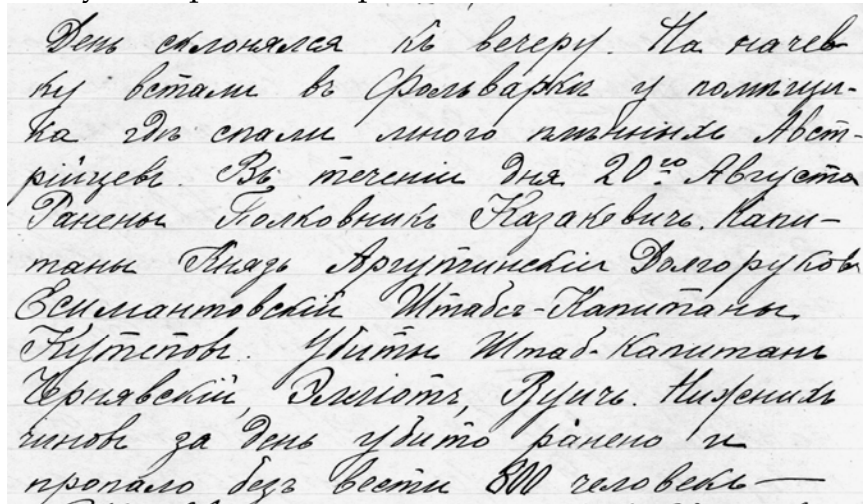 День склонялся къ вечеру. На начев-
ку встали въ Фольварки у помѣщи-
ка гдѣ спали много плѣнныхъ Авст-
рійцевъ. Въ теченіи дня 20го Августа
Ранены Полковникъ Казакевичъ. Капи-
таны Князь Аргутинскій Долгоруковъ
Есимантовскій Штабсъ-Капитаны
Кутеповъ. Убиты Штаб-Капитанъ
Чернявскій, Элліотъ, Вуичъ. Нижнихъ
чиновъ за день убито ранено и
пропало безъ вести 800 человекъ —